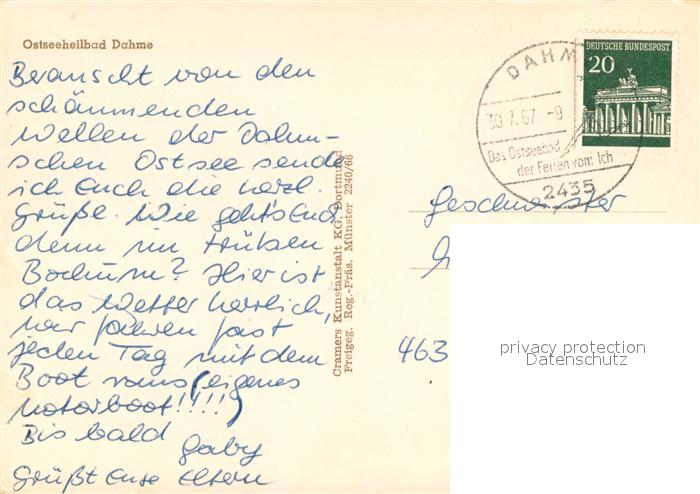 Ostseeheilbad Dahme
Berauscht von den
schäumenden
Wellen der Dahm-
schen Ostsee sende
ich Euch die herzl.
Grüße. Wie geht's Euch
denn im trüben
Bochum? Hier ist
das Wetter herrlich,
wir fahren fast
jeden Tag mit dem
Boot raus (eigenes
Motorboot!!!!)
Bis bald
Gaby
Grüßt Eure Eltern
Cramers Kunstanstalt KG, Dortmund
Freigeg. Reg.-Präs. Münster 2240/66
DEUTSCHE BUNDESPOST
20
DAHM
30.7.67 -9
Das Ostseebad
der Ferien vom Ich
2435
Geschwister
463
privacy protection
Datenschutz